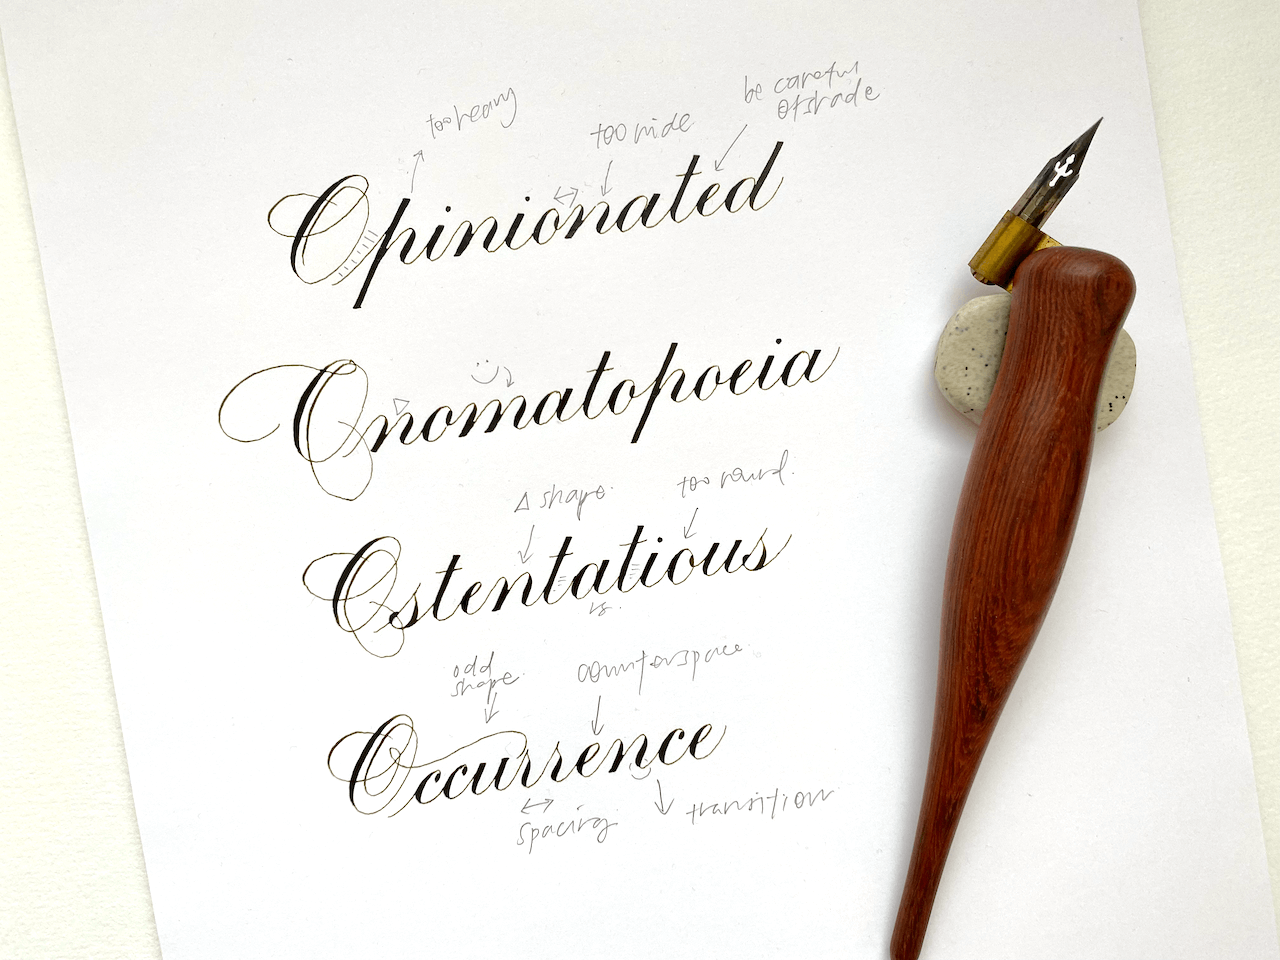 too heavy
too wide
be careful
of shade
Opinionated
Onomatopoeia
Δ shape.
too round.
Ostentatious
odd
shape.
counterspace.
Occurrence
spacing.
transition